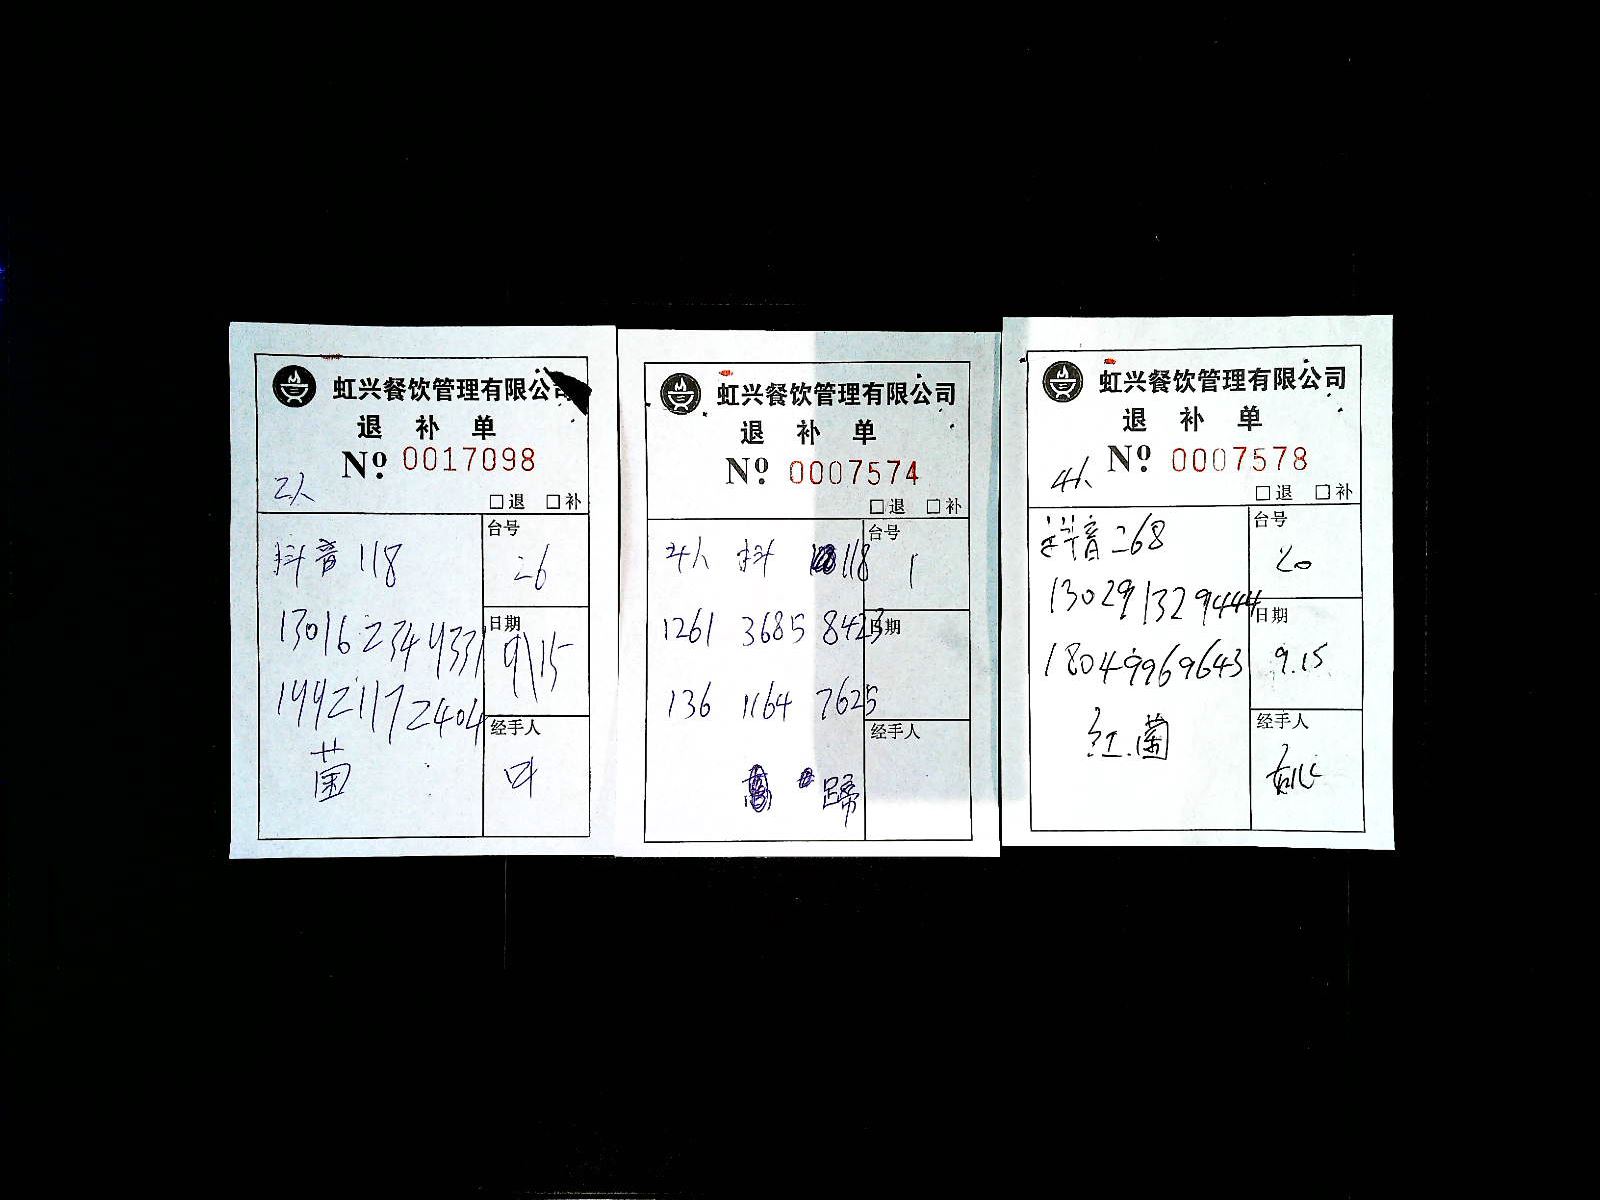 虹兴餐饮管理有限公司
退 补 单
Nº 0017098
2人
□退 □补
抖音 118
13016234933
台号
26
日期
9\15
经手人
菌
虹兴餐饮管理有限公司
退 补 单
Nº 0007574
□退 □补
4人 抖 118
1261 3685 8423
136 1164 7625
蹄
台号
1
日期
经手人
虹兴餐饮管理有限公司
退 补 单
Nº 0007578
4人
□退 □补
抖音 268
130291329444
18049969643
红.菌
台号
20
日期
9.15
经手人